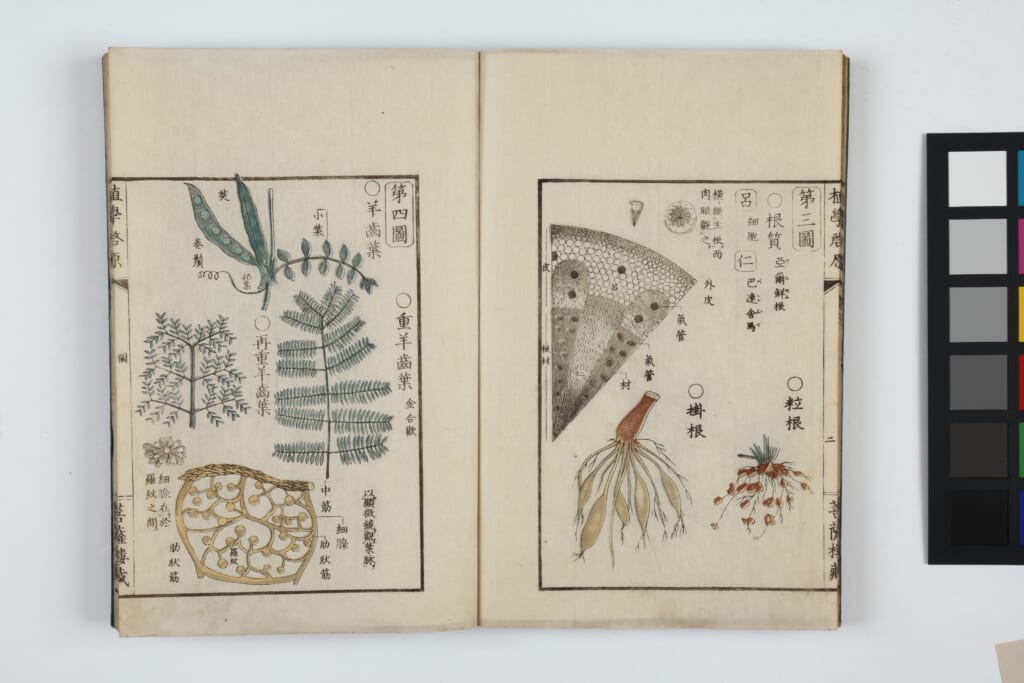 第三圖
○根質
亞爾鮮根
呂
細胞
仁
巴連舍馬
橫斷生根而
肉眼觀之
外皮
氣管
氣管
材
皮
呂
○粒根
○掛根
二
第四圖
○羊齒葉
小葉
莢
卷鬚
○重羊齒葉
金合歡
○再重羊齒葉
以顯微鏡觀葉脉
中筋
細腺
肋狀筋
羅紋
肋狀筋
細腺在於
羅紋之間
植學啓原
圖
菩薩樓藏